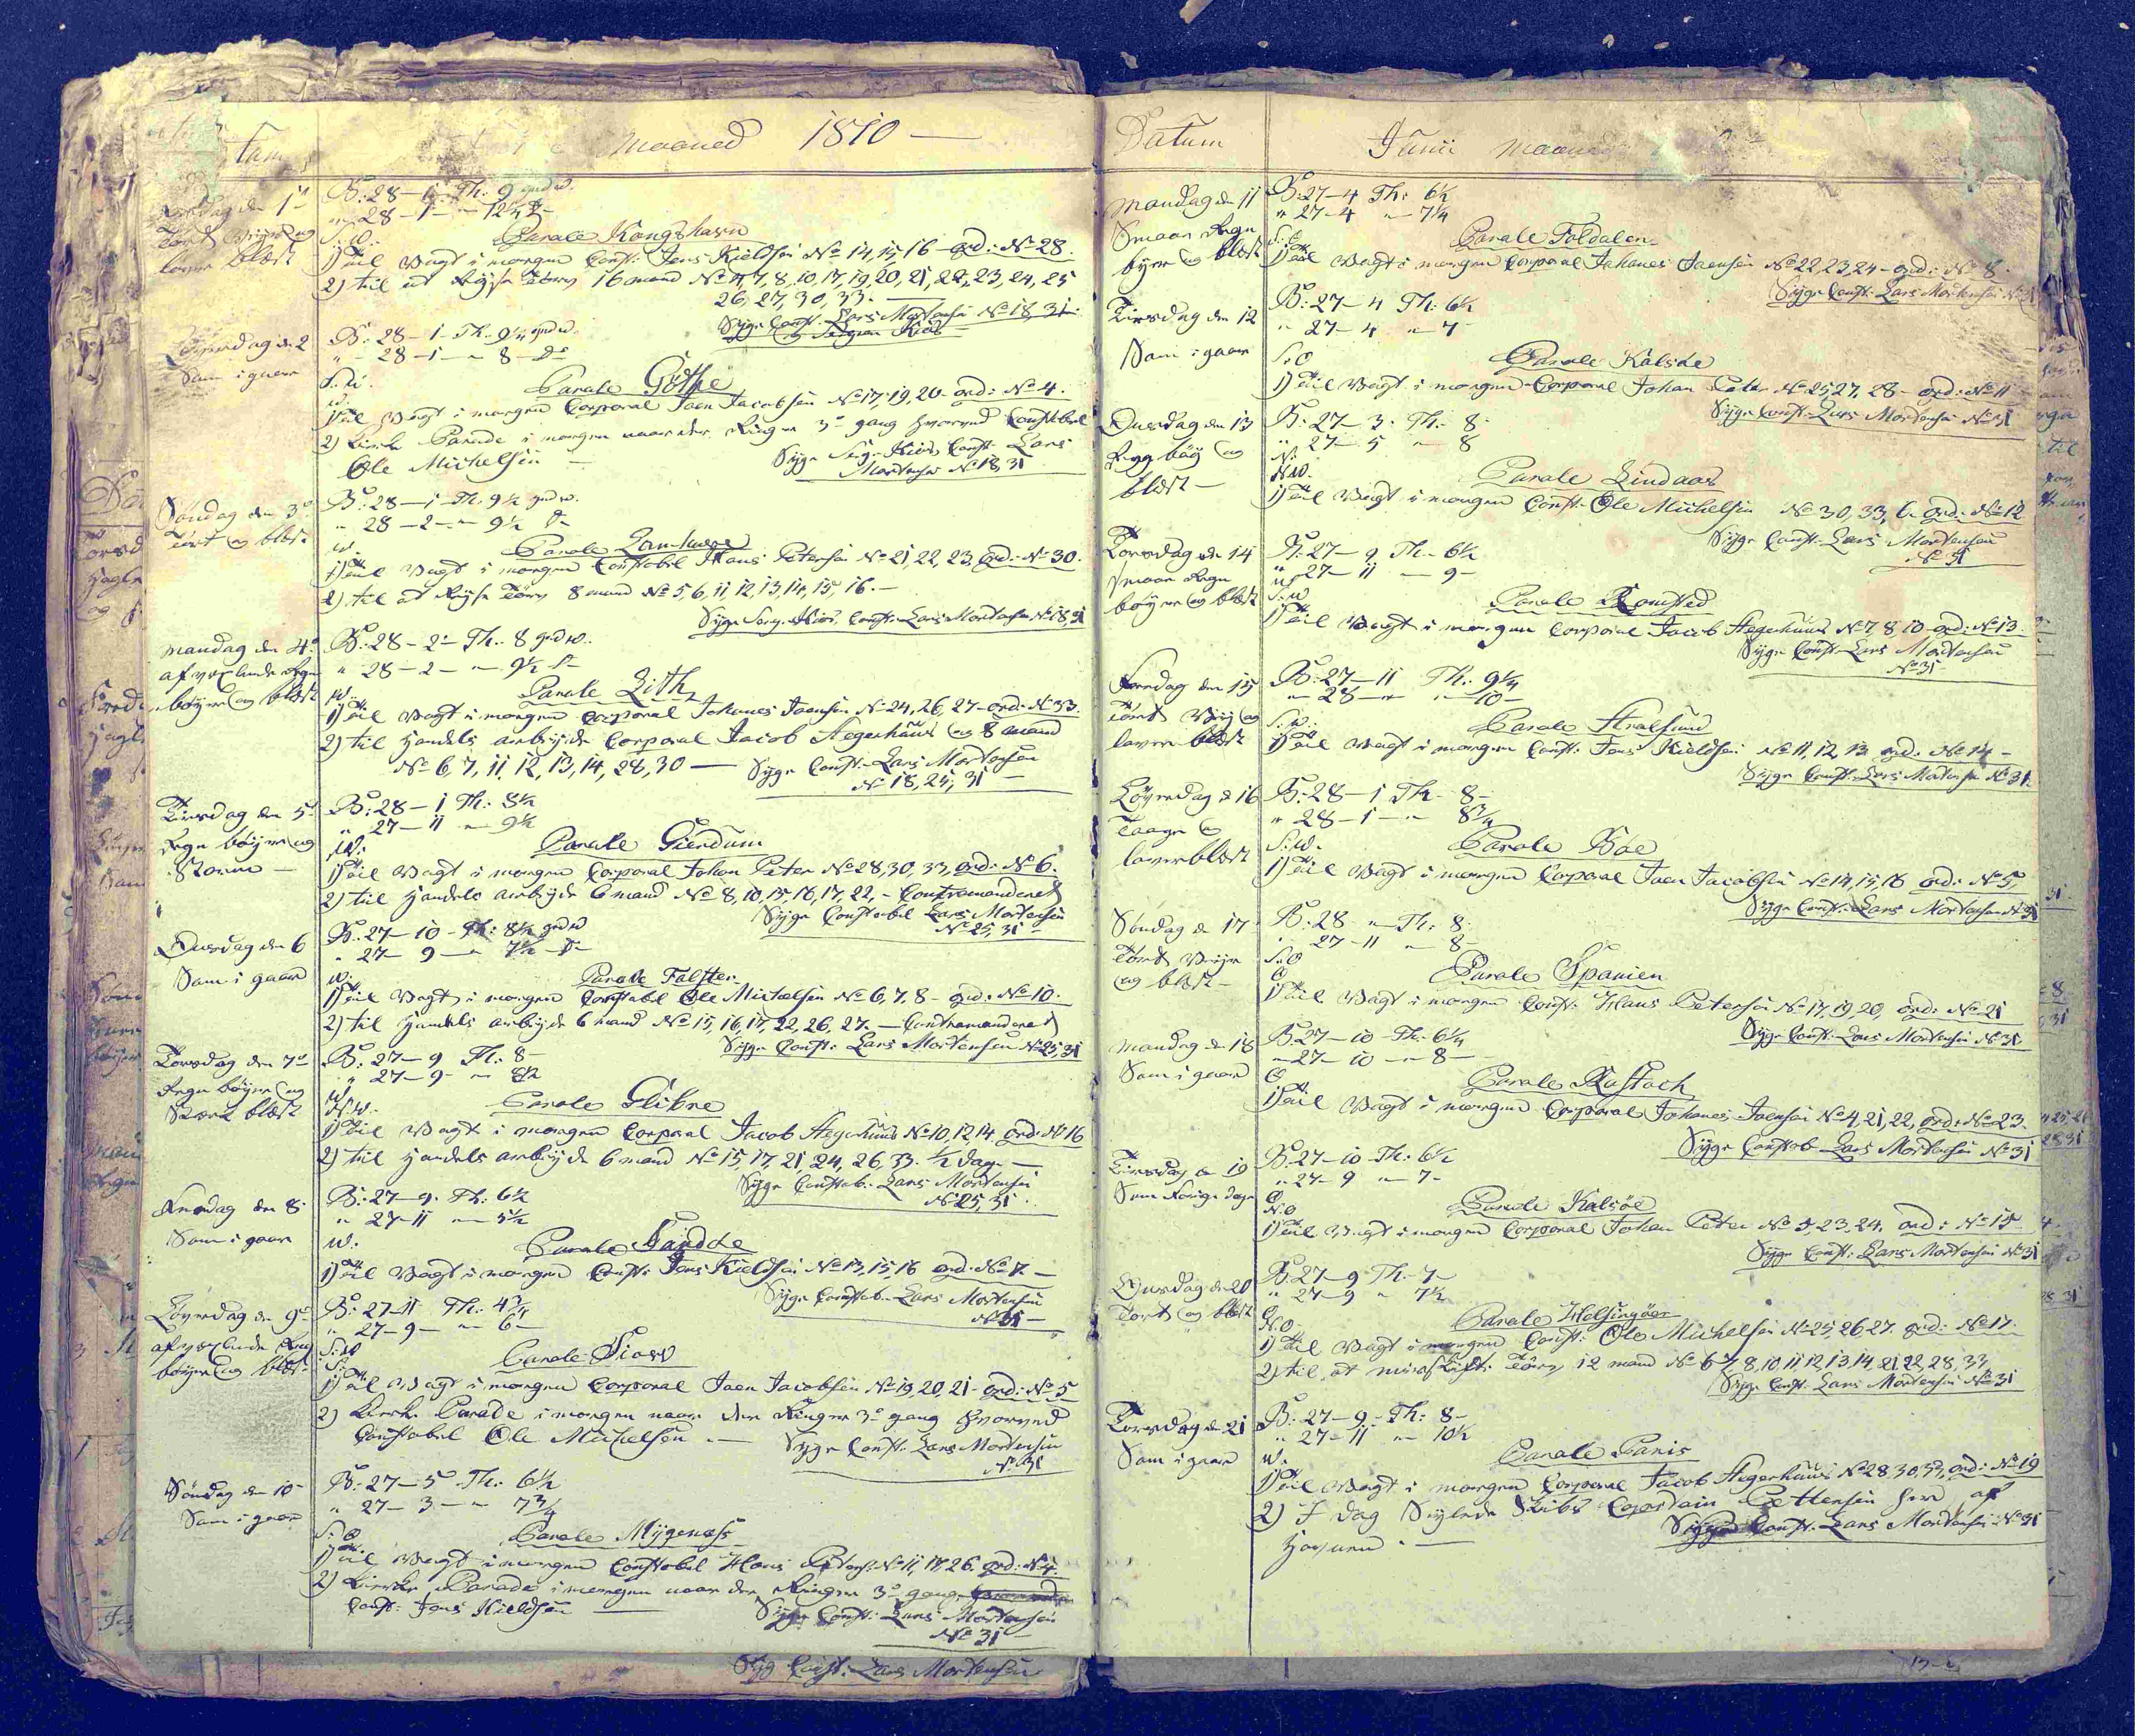 Maaned 1810 —
Fredag den 1te
Tört Vejr og
laver blæst
B: 28 - 1 - Th: 9 grd w.
" 28 - 1 - " 12 1/4 do
S:W.
Parole Kongshavn
1) Til Vagt i morgen Const: Jens Kieldsen No 14, 15, 16 - ord: No 28.
2) til at Rejse Törv 16 mand No 4, 7, 8, 10, 17, 19, 20, 21, 22, 23, 24, 25
26, 27, 30, 33. —
Syge Const: Lars Mortensen No 18, 31
og Sergean Kiös
Löverdag den 2
Som i gaar
B: 28 - 1 - Th: 9 1/4 grd w.
" 28 - 1 - " 8 - do
Parole Göthe
1) Til Vagt i morgen Corporal Joen Jacobsen No 17, 19, 20 - ord: No 4.
2) Kirke Parade i morgen naar der Ringer 3de gang hvorved Constabel
Ole Michelsen —
Syge Serg: Kiös, Const: Lars
Mortensen No 18, 31
Söndag den 3de
Tört og blæst
B: 28 - 1 - Th: 9 1/2 grd w.
" 28 - 2 - " 9 1/2 do
W
Parole
1) Til Vagt i morgen Constabel Hans Petersen No 21, 22, 23 ord: No 30.
2) til at Rejse Törv 8 mand No 5, 6, 11, 12, 13, 14, 15, 16. —
Syge Serg: Kiös, Const: Lars Mortensen No 18, 31
Mandag den 4de
afvexlende Regn
böyer og blæst
B: 28 - 2 - Th: 8 grd w.
" 28 - 2 - " 9 1/2 do
W.
Parole Lith
1) Til Vagt i morgen Corporal Johanes Joensen No 24, 26, 27 - ord: No 33.
2) til Handels arbejde Corporal Jacob Hegerhuus og 8 mand
No 6, 7, 11, 12, 13, 14, 28, 30 —
Syge Const: Lars Mortensen
No 18, 25, 31 —
Tirsdag den 5te
Regn böyer og
Storm —
B: 28 - 1 Th: 8 1/2
" 27 - 11 " 9 1/2
W.
Parole Gierdum
1) Til Vagt i morgen Corporal Johan Peter No 28, 30, 33, ord: No 6.
2) til Handels arbejde 6 mand No 8, 10, 15, 16, 17, 22, - Contramanderet
Syge Constabel Lars Mortensen
No 25, 31
Onsdag den 6
Som i gaar
B: 27 - 10 - Th: 8 1/2 grd w
" 27 - 9 - " 7 1/2 - do
W.
Parole Falster
1) Til Vagt i morgen Constabel Ole Michelsen No 6, 7, 8 - ord: No 10.
2) til Handels arbejde 6 mand No 15, 16, 17, 22, 26, 27. — Contramanderet
Syge Const: Lars Mortensen No 25, 31
Torsdag den 7de
Regn böyer og
Stærk blæst
B: 27 - 9 Th: 8 -
" 27 - 9 - " 8 1/2
W
N:W.
Parole Glibre
1) Til Vagt i morgen Corporal Jacob Hegerhuus No 10, 12, 14 ord: No 16
2) til Handels arbejde 6 mand No 15, 17, 21, 24, 26, 33. 1/2 dag —
Syge Constab: Lars Mortensen
No 25, 31.
Fredag den 8
Som i gaar
B: 27 - 9. Th: 6 1/2
" 27 - 11 " 5 1/2
W.
Parole
1) Til Vagt i morgen Const: Jens Kieldsen No 13, 15, 16 ord: No 7. —
Syge Constab: Lars Mortensen
No 31 —
Löverdag den 9de
afvexlende Regn
böyer og blæst
B: 27 - 11 Th: 4 3/4
" 27 - 9 - " 6 —
S:W
Parole
1) Til Vagt i morgen Corporal Joen Jacobsen No 19, 20, 21 - ord: No 5
2) Kirke Parade i morgen naar der Ringer 3de gang hvorved
Constabel Ole Michelsen. —
Syge Const: Lars Mortensen
No 31
Söndag den 10
Som i gaar
B: 27 - 5 Th: 6 1/2
" 27 - 3 - " 7 3/4
S:O
Parole Mygenæs
1) Til Vagt i morgen Constabel Hans Peters: No 11, 17, 26. ord: No 4.
2) Kirke Parade i morgen naar der Ringer 3de gang
Const: Jens Kieldsen —
Syge Const: Lars Mortensen
No 31 —
Syg Const: Lars Mortensen
Datum
Junii maaned
Mandag den 11
Smaae Regn
byer og blæst
B: 27 - 4 Th: 6 1/2
" 27 - 4 " 7 1/4
Parole Foldalen
1) Til Vagt i morgen Corporal Johanes Joensen No 22, 23, 24 - ord: No 8.
Syge Const: Lars Mortensen No 31
Tirsdag den 12
Som i gaar
B: 27 - 4 Th: 6 1/2
" 27 - 4 " 7
S:O
Parole Kalsöe
1) Til Vagt i morgen Corporal Johan Peter No 25, 27, 28 - ord: No 11
Syge Const: Lars Mortensen No 31
Onsdag den 13
Regg böy og
blæst —
B: 27 - 3 Th: 8
" 27 - 5 " 8
N:
N:W.
Parole Lindaas
1) Til Vagt i morgen Const: Ole Michelsen No 30, 33, 6 ord: No 12
Syge Const: Lars Mortensen
No 31
Torsdag den 14
Smaae Regn
böyer og blæst
B: 27 - 9 Th: 6 1/2
" 27 - 11 - 9 -
S:W
Parole Romsted
1) Til Vagt i morgen Corporal Jacob Hegerhuus No 7, 8, 10 ord: No 13
Syge Const: Lars Mortensen
No 31
Fredag den 15
Tört Vejr og
laver blæst
B: 27 - 11 Th: 9 1/4
" 28 - " - 10 -
S:W.
Parole Stralsund
1) Til Vagt i morgen Const: Jens Kieldsen No 11, 12, 13 ord: No 14 -
Syge Const: Lars Mortensen No 31.
Löverdag d 16
Taage og
laver blæst
B: 28 - 1 Th: 8 -
" 28 - 1 - " 8 3/4
S:W.
Parole Böe
1) Til Vagt i morgen Corporal Joen Jacobsen No 14, 15, 16 ord: No 5,
Syge Const: Lars Mortensen No 31
Söndag d 17
Tört Vejr
og blæst —
B: 28 " Th: 8
" 27 - 11 " 8 -
S:O
O
Parole Spanien
1) Til Vagt i morgen Const: Hans Petersen No 17, 19, 20, ord: No 21
Syge Const: Lars Mortensen No 31
Mandag den 18
Som i gaar
B: 27 - 10 Th: 6 1/4
" 27 - 10 - " 8 -
O
Parole Rostoch
1) Til Vagt i morgen Corporal Johanes Joensen No 4, 21, 22, ord: No 23.
Syge Constab Lars Mortensen No 31
Tirsdag d 19
Som forige dage
B: 27 - 10 Th: 6 1/2
" 27 - 9 " 7 -
O
N:O
Parole Kalsöe
1) Til Vagt i morgen Corporal Johan Peter No 5, 23, 24, ord: No 15
Syge Const: Lars Mortensen No 31
Onsdag den 20
Tört og blæst
B: 27 - 9 Th: 7 -
" 27 - 9 " 7 1/2
N:O
Parole Helsingöer
1) Til Vagt i morgen Const: Ole Michelsen No 25, 26, 27. ord: No 17.
2) til at Törv 12 mand No 6, 7, 8, 10, 11, 12, 13, 14, 21, 22, 28, 33
Syge Const: Lars Mortensen No 31
Torsdag d 21
Som i gaar
B: 27 - 9 - Th: 8 -
" 27 - 11 " 10 1/2
W.
Parole Paris
1) Til Vagt i morgen Corporal Jacob Hegerhuus No 28, 30, 33, ord: No 19
2) I dag Seylede Skibs Capitain Pettersen her af
Havnen. —
Syge Const: Lars Mortensen No 31